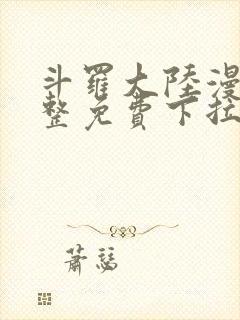 斗羅大陸漫
整免費下拉
蕭瑟